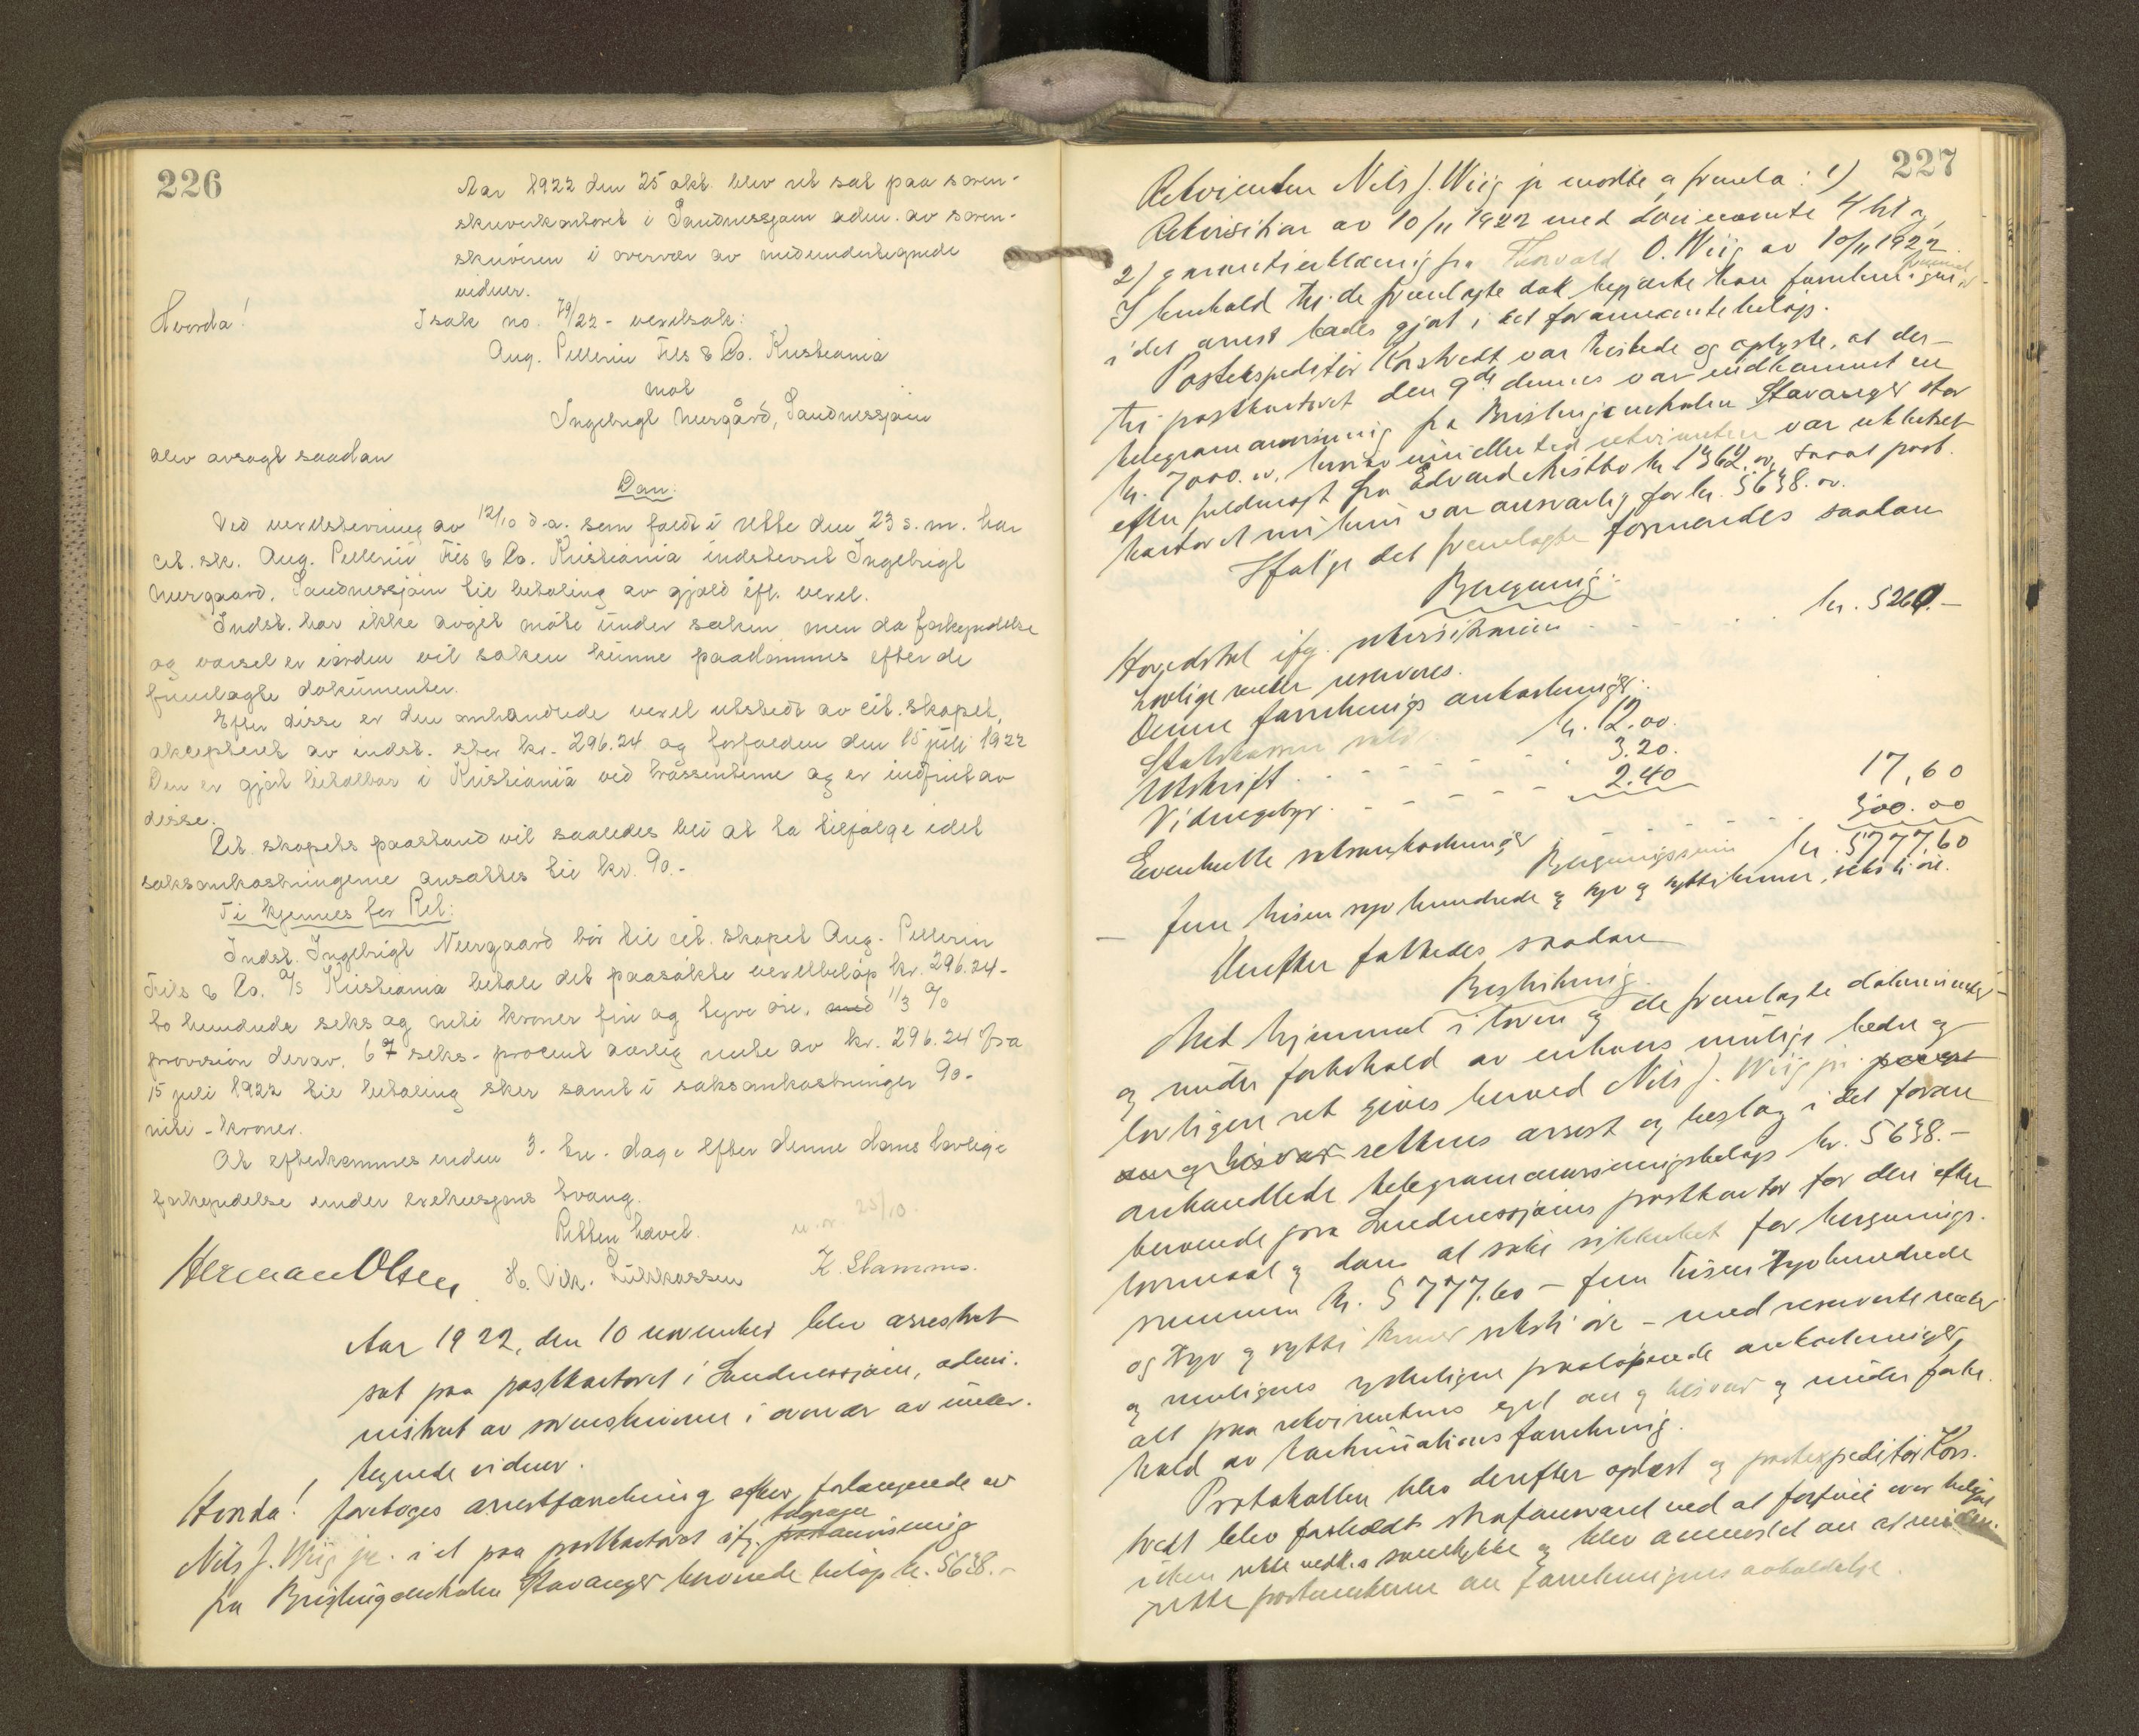 226
Aar 1922 den 25 okt. blev ret sat paa soren-
skriverkontoret i Sandnessjøen adm. av soren-
skriveren i overvær av medundertegnede
vidner.
Hvorda!
I sak no. 79/22 - vexelsak:
Aug. Pellerin Fils & Co. Kristiania
mot
Ingebrigt Neergård, Sandnessjøen
blev avsagt saadan
Dom:
Ved vexelstevning av 12/10 d.a. som faldt i rette den 23 s.m. har
cit. sk. Aug. Pellerin Fils & Co. Kristiania indstevnt Ingebrigt
Neergaard, Sandnessjøen til betaling av gjæld ifl. vexel.
Indst. har ikke avgit møte under saken men da forkyndelse
og varsel er i orden vil saken kunne paadømmes efter de
fremlagte dokumenter.
Efter disse er den omhandlede vexel utstedt av cit. skapet,
akcepteret av indst. stor kr. 296.24 og forfalden den 15 juli 1922
Den er gjort betalbar i Kristiania ved trassenterne og er indfriet av
disse.
Cit. skapets paastand vil saaledes bli at ta tilfølge idet
saksomkostningerne ansættes til kr. 90.-
Ti kjennes for Ret:
Indst. Ingebrigt Neergaard bør til cit. skapet Aug. Pellerin
Fils & Co. A/S Kristiania betale det paasøkte vexelbeløp kr. 296.24 -
to hundrede seks og niti kroner fire og tyve øre, med 1/3 %
provision derav, 6 % seks - procent aarlig rente av kr. 296.24 fra
15 juli 1922 til betaling sker samt i saksomkostninger 90.-
niti - kroner.
At efterkommes inden 3 - tre - dage efter denne doms lovlige
forkyndelse under exekusjons tvang.
Retten hævet.
25/10.
Herman Olsen H. Vik. Lukkassen K. Stamnes.
Aar 1922, den 10 november blev arrestret
sat paa postkontoret i Sandnessjøen, admi-
nistret av sorenskriveren i overvær av under-
tegnede vidner.
Hvorda! foretoges arrestforretning efter forlangende av
Nils J. Wiig jr. i et paa postkontoret ifg. postanvisning telegram
fra Brislingcentralen Stavanger beroende beløp kr. 5638.-
227
Rekvirenten Nils J. Wiig jr møtte og fremla: 1)
Rekvisition av 10/11 1922 med dokumenter 4 bl og
2) garantierklæring fra Thorvald O. Wiig av 10/11 1922.
I henhold til de fremlagte dok begjærte han forretningen fremmet
idet arrest bades gjort i det forannævnte beløp.
Postekspeditør Korstvedt var tilstede og oplyste, at der
til postkontoret den 9de dennes var indkommet en
telegramanvisning fra Brislingcentralen Stavanger stor
kr. 7000.00, hvorav imidlertid rekvirenten var utbetalt
efter fuldmagt fra Edvard Mistbo kr 1362.00, saaat post-
kontoret nu kun var ansvarlig for kr. 5638.00.
Ifølge det fremlagte formendes saadan
Beregning:
Hovedstol ifg. rekvisitionen kr. 5260.-
Lovlige renter reserveres.
Denne forretnings omkostninger:
Statskassen kr. 12.00.
Utskrift 3.20.
Vidnegebyr. 2.40 17,60
Eventuelle saksomkostninger 500.00
Beregningssum kr. 5777,60
- fem tusen syv hundrede og syv og sytti kroner, seksti øre.
Derefter fattedes saadan
Beslutning.
Med hjemmel i loven og de fremlagte dokumenter
og under forbehold av enhvers mulige bedre og
lovligere ret gives herved Nils J. Wiig jr.
rettens arrest og beslag i det foran
omhandlede telegramanvisningsbeløp kr. 5638.-
beroende paa Sandnessjøens postkontor for den efter
lovmaal og dom at søke sikkerhet for beregnings-
summen kr. 5777.60 - fem tusen syv hundrede
og syv og sytti kroner seksti øre - med reserverte renter
og muligens yderligere paaløpende omkostninger,
alt paa rekvirentens eget an og tilsvar og under forbe-
hold av kontinuationsforretning.
Protokollen blev derefter oplæst og postexpeditør Kors-
tvedt blev foreholdt strafansvaret ved at forføie over beløpet
uten rette vedk.s samtykke og blev anmodet om at
rette om forretningens avholdelse.